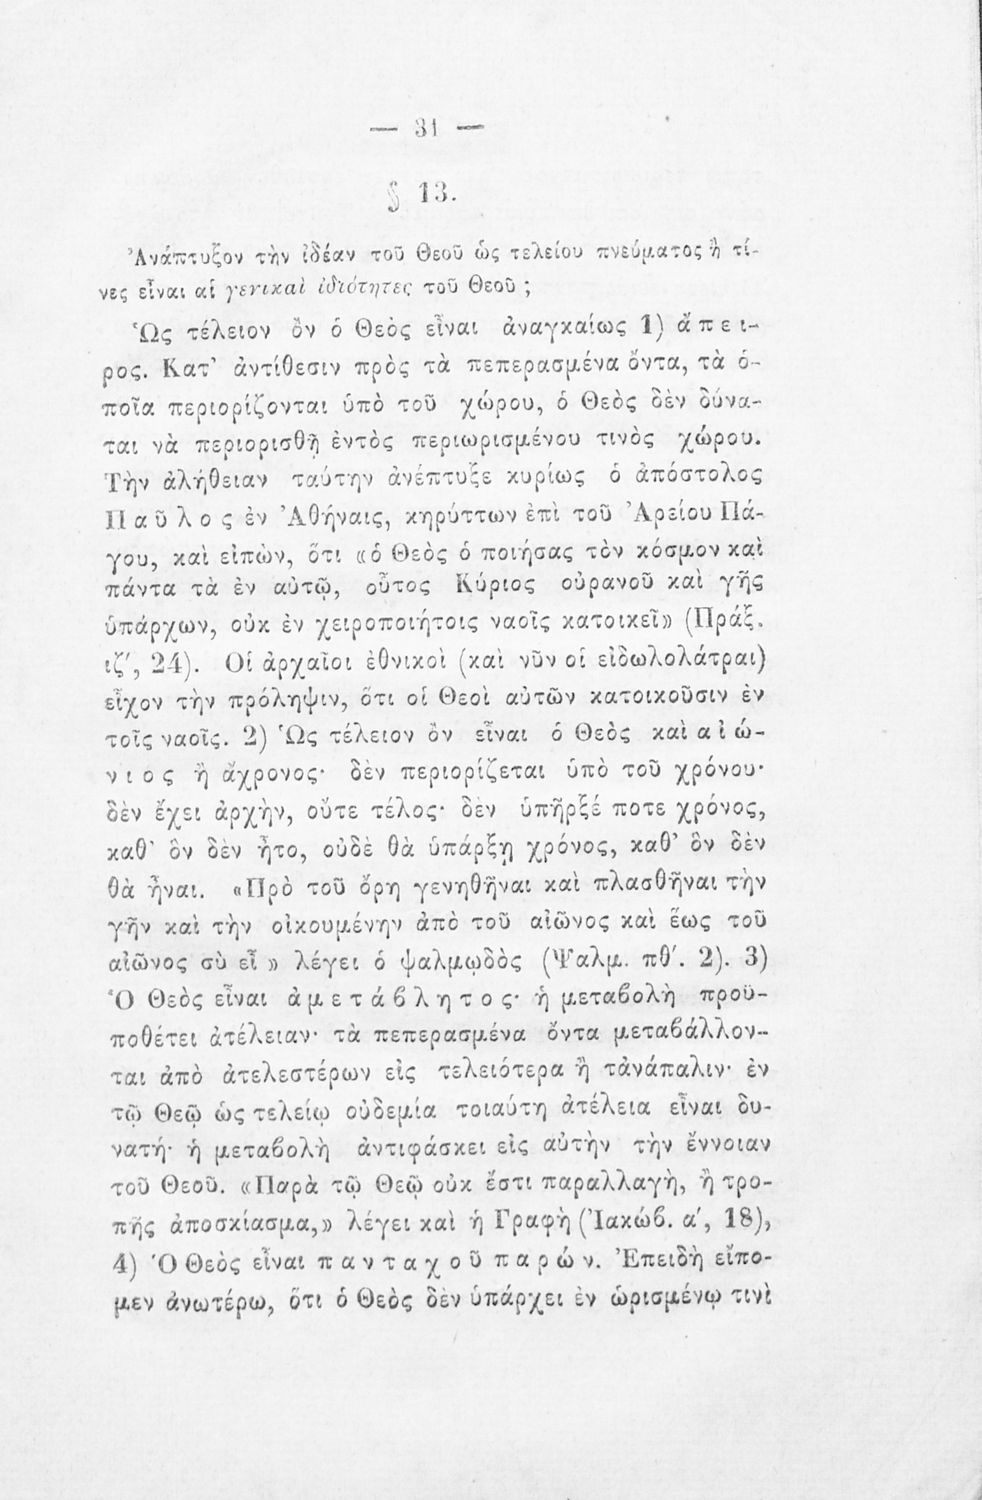 — 31 —
§ 13.
Ἀνάπτυξον τὴν ἰδέαν τοῦ Θεοῦ ὡς τελείου πνεύματος ἢ τί-
νες εἶναι αἱ γενικαὶ ἰδιότητες τοῦ Θεοῦ ;
Ὡς τέλειον ὂν ὁ Θεὸς εἶναι ἀναγκαίως 1) ἄ π ε ι-
ρος. Κατ' ἀντίθεσιν πρὸς τὰ πεπερασμένα ὄντα, τὰ ὁ-
ποῖα περιορίζονται ὑπὸ τοῦ χώρου, ὁ Θεὸς δὲν δύνα-
ται νὰ περιορισθῇ ἐντὸς περιωρισμένου τινὸς χώρου.
Τὴν ἀλήθειαν ταύτην ἀνέπτυξε κυρίως ὁ ἀπόστολος
Π α ῦ λ ο ς ἐν Ἀθήναις, κηρύττων ἐπὶ τοῦ Ἀρείου Πά-
γου, καὶ εἰπὼν, ὅτι «ὁ Θεὸς ὁ ποιήσας τὸν κόσμον καὶ
πάντα τὰ ἐν αὐτῷ, οὗτος Κύριος οὐρανοῦ καὶ γῆς
ὑπάρχων, οὐκ ἐν χειροποιήτοις ναοῖς κατοικεῖ» (Πράξ.
ιζ', 24). Οἱ ἀρχαῖοι ἐθνικοὶ (καὶ νῦν οἱ εἰδωλολάτραι)
εἶχον τὴν πρόληψιν, ὅτι οἱ Θεοὶ αὐτῶν κατοικοῦσιν ἐν
τοῖς ναοῖς. 2) Ὡς τέλειον ὂν εἶναι ὁ Θεὸς καὶ α ἰ ώ-
ν ι ο ς ἢ ἄχρονος· δὲν περιορίζεται ὑπὸ τοῦ χρόνου·
δὲν ἔχει ἀρχὴν, οὔτε τέλος· δὲν ὑπῆρξέ ποτε χρόνος,
καθ' ὃν δὲν ἦτο, οὐδὲ θὰ ὑπάρξῃ χρόνος, καθ' ὃν δὲν
θὰ ἦναι. «Πρὸ τοῦ ὄρη γενηθῆναι καὶ πλασθῆναι τὴν
γῆν καὶ τὴν οἰκουμένην ἀπὸ τοῦ αἰῶνος καὶ ἕως τοῦ
αἰῶνος σὺ εἶ» λέγει ὁ ψαλμῳδὸς (Ψαλμ. πθ'. 2). 3)
Ὁ Θεὸς εἶναι ἀ μ ε τ ά β λ η τ ο ς· ἡ μεταβολὴ προϋ-
ποθέτει ἀτέλειαν· τὰ πεπερασμένα ὄντα μεταβάλλον-
ται ἀπὸ ἀτελεστέρων εἰς τελειότερα ἢ τἀνάπαλιν· ἐν
τῷ Θεῷ ὡς τελείῳ οὐδεμία τοιαύτη ἀτέλεια εἶναι δυ-
νατή· ἡ μεταβολὴ ἀντιφάσκει εἰς αὐτὴν τὴν ἔννοιαν
τοῦ Θεοῦ. «Παρὰ τῷ Θεῷ οὐκ ἔστι παραλλαγὴ, ἢ τρο-
πῆς ἀποσκίασμα,» λέγει καὶ ἡ Γραφὴ (Ἰακώβ. α', 18),
4) Ὁ Θεὸς εἶναι π α ν τ α χ ο ῦ π α ρ ώ ν. Ἐπειδὴ εἴπο-
μεν ἀνωτέρω, ὅτι ὁ Θεὸς δὲν ὑπάρχει ἐν ὡρισμένῳ τινὶ